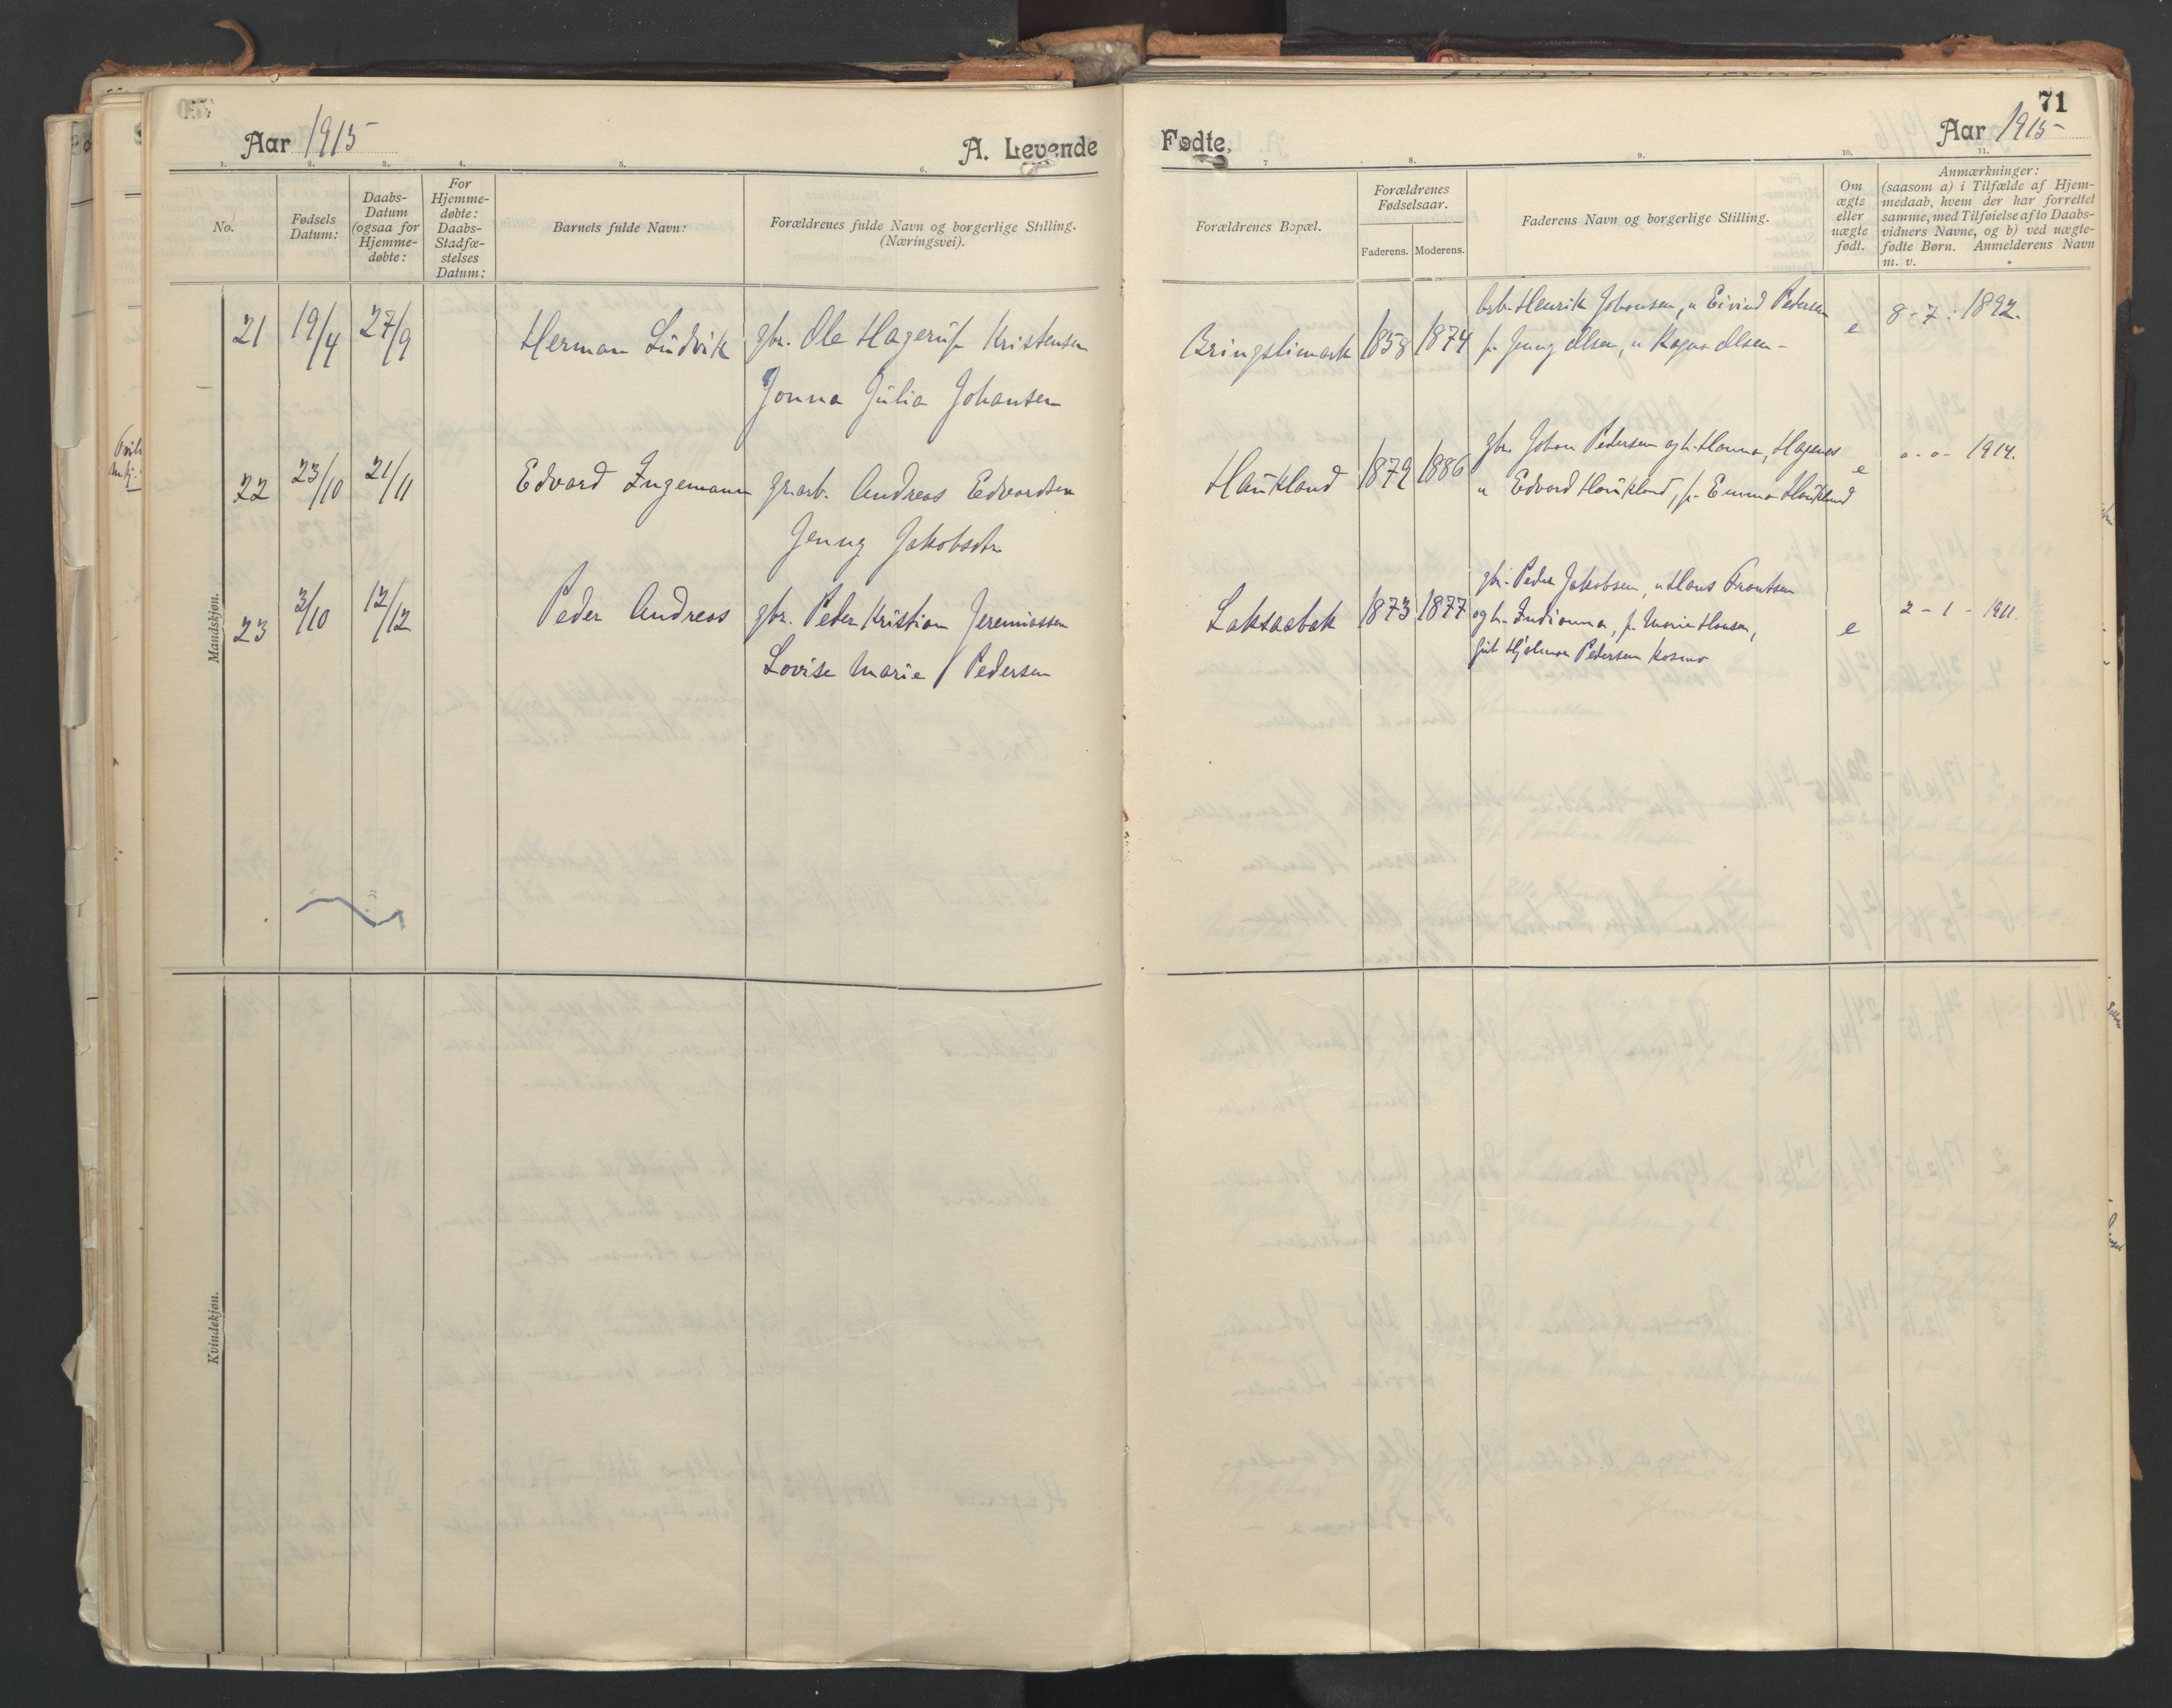 71
Aar 1915
A. Levende
Fødte.
Aar 1915
1. 2. 3. 4. 5. 6. 7 8. 9. 10. 11.
No.
Fødsels Datum:
Daabs-Datum (ogsaa for Hjemme-døbte:
For Hjemme-døbte: Daabs-Stadfæ-stelses Datum:
Barnets fulde Navn:
Forældrenes fulde Navn og borgerlige Stilling.
(Næringsvei).
Forældrenes Bopæl.
Forældrenes Fødselsaar.
Faderens. Moderens.
Faderens Navn og borgerlige Stilling.
Om ægte eller uægte født.
Anmærkninger:
(saasom a) i Tilfælde af Hjem-
medaab, hvem der har forrettet
samme, med Tilføielse af to Daabs-
vidners Navne, og b) ved uægte-
fødte Børn. Anmelderens Navn
m. v.
Mandskjøn.
21 19/4 27/9 Herman Ludvik gbr. Ole Hagerup Kristensen
Jonna Julia Johansen
Bringslimark 1858 1874
Henrik Johansen, u Eivind Pedersen
p. Jenny Olsen, u Ragna Olsen -
e 8 - 7 : 1892.
22 23/10 21/11 Edvard Ingemann gr.arb. Andreas Edvardsen
Jenny Jakobsdtr
Haukland 1879 1886
gbr Johan Pedersen og h. Hanna, Hagenes
u Edvard Haukland, p. Emma Haukland
e 1914.
23 3/10 12/12 Peder Andreas gbr. Peter Kristian Jeremiassen
Lovise Marie Pedersen
Laksaabak 1873 1877
gbr. Peder Jakobsen, u Hans Frantsen
og h. Indianna, p. Marie Hansen,
Hjalmar Pedersen Kosmo
e 2 - 1 - 1911.
Kvindekjøn.